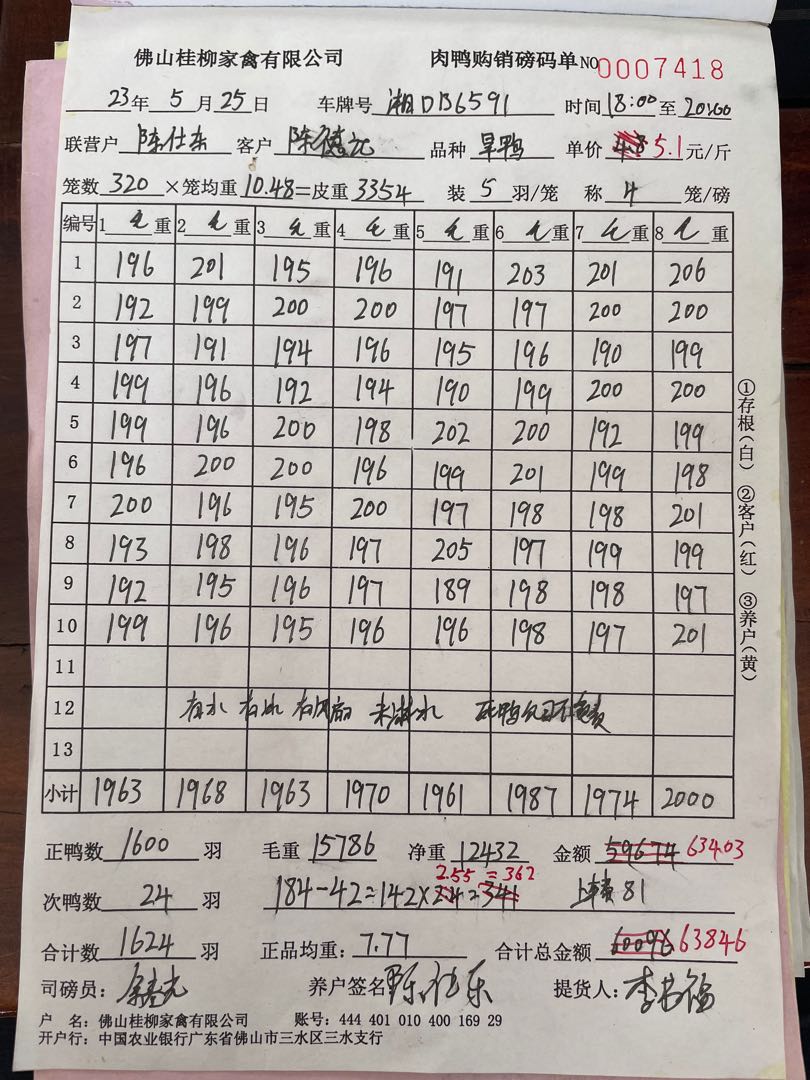 佛山桂柳家禽有限公司 肉鸭购销磅码单 NO 0007418
23年 5月 25日 车牌号 湘DB6591 时间 18:00 至 20:00
联营户 陈仕东 客户 陈德元 品种 旱鸭 单价 4.8 5.1 元/斤
笼数 320 ×笼均重 10.48 =皮重 3354 装 5 羽/笼 称 4 笼/磅
编号 1 毛 重 2 毛 重 3 毛 重 4 毛 重 5 毛 重 6 毛 重 7 毛 重 8 毛 重
1 196 201 195 196 191 203 201 206
2 192 199 200 200 197 197 200 200
3 197 191 194 196 195 196 190 199
4 199 196 192 194 190 199 200 200
5 199 196 200 198 202 200 192 199
6 196 200 200 196 199 201 199 198
7 200 196 195 200 197 198 198 201
8 193 198 196 197 205 197 199 199
9 192 195 196 197 189 198 198 197
10 199 196 195 196 196 198 197 201
11
12 有水 有冰 有风扇 未淋水 死鸭公司不负责
13
小计 1963 1968 1963 1970 1961 1987 1974 2000
正鸭数 1600 羽 毛重 15786 净重 12432 金额 59674 63403
2.55 = 362
次鸭数 24 羽 184-42=142×2.4=341 上车费 81
合计数 1624 羽 正品均重: 7.77 合计总金额 60096 63846
司磅员: 养户签名 陈仕东 提货人:
户 名: 佛山桂柳家禽有限公司 账号: 444 401 010 400 169 29
开户行: 中国农业银行广东省佛山市三水区三水支行
①存根(白) ②客户(红) ③养户(黄)